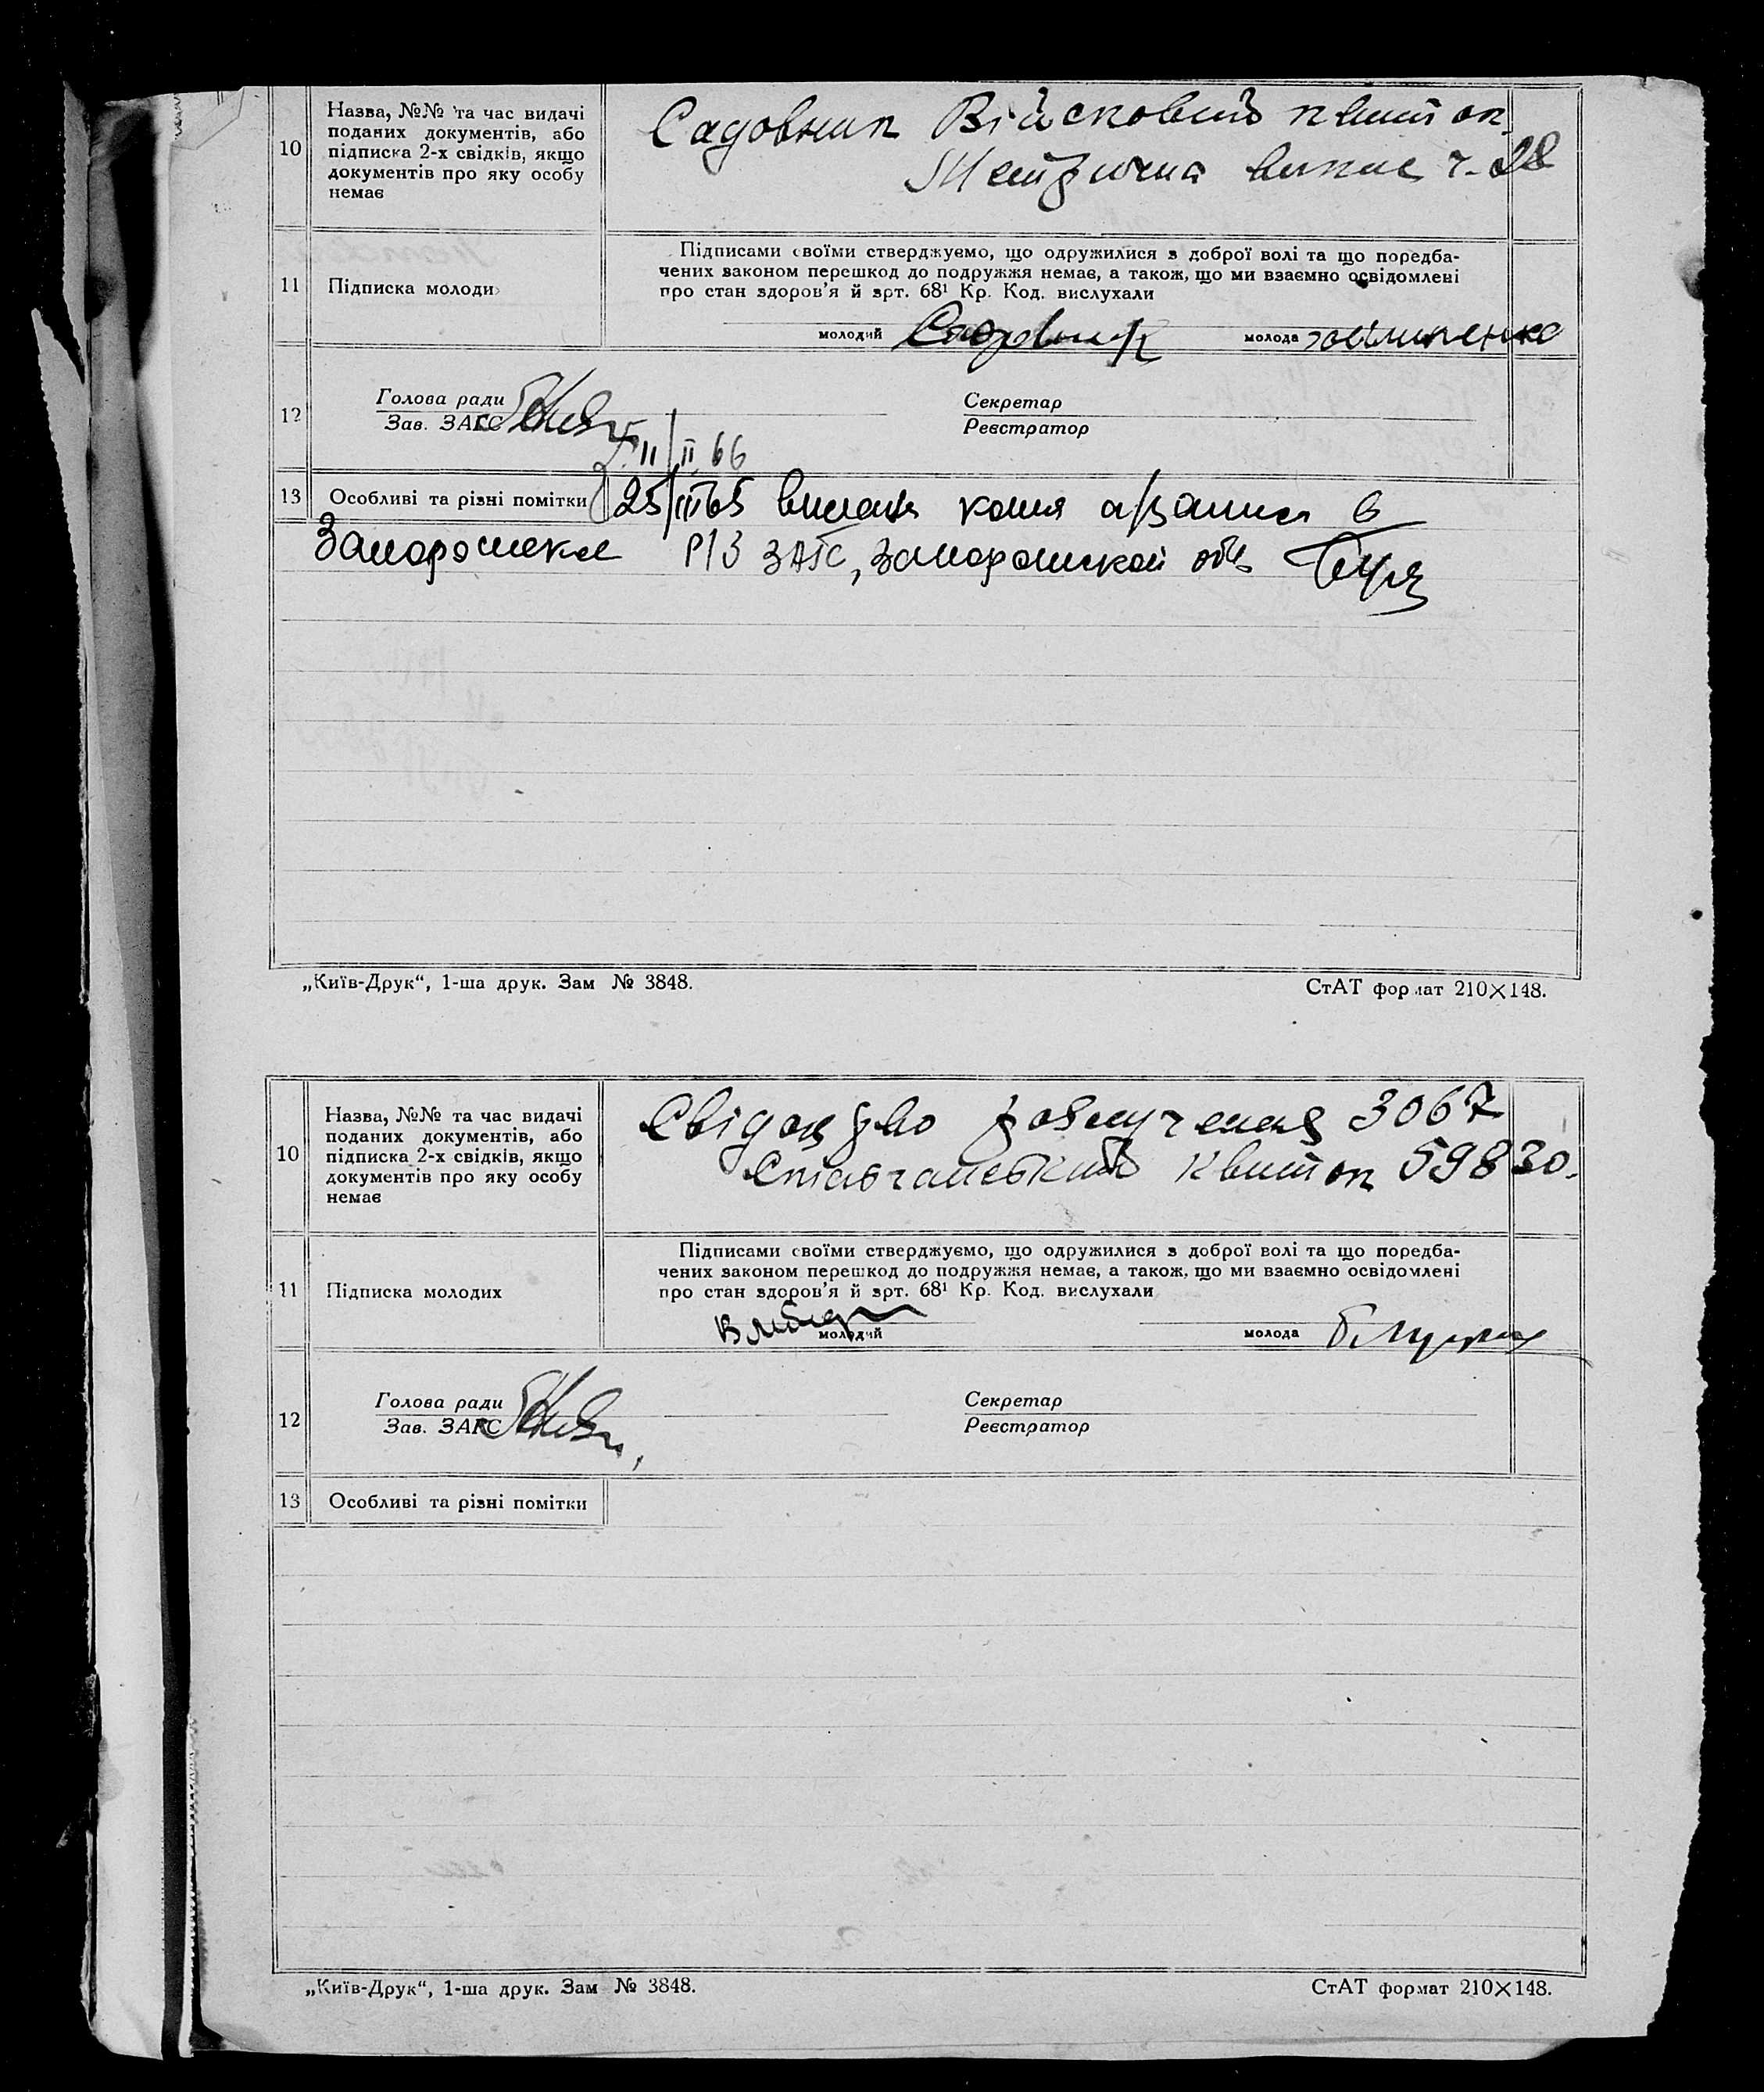 10
Назва, №№ та час видачі
поданих документів, або
підписка 2-х свідків, якщо
документів про яку особу
немає
Садовник Військовий квиток.
Метрична випис ч. 28
11
Підписка молоди
Підписами своїми стверджуємо, що одружилися з доброї волі та що передба-
чених законом перешкод до подружжя немає, а також, що ми взаємно освідомлені
про стан здоров'я й арт. 68¹ Кр. Код. вислухали
молодий Садовник молода
12
Голова ради
Зав. ЗАГС
Секретар
Реєстратор
11/II 66
13
Особливі та різні помітки
25/III 65 копия в
ЗАГС, Запорожской обл
„Київ-Друк“, 1-ша друк. Зам № 3848.
СтАТ формат 210×148.
10
Назва, №№ та час видачі
поданих документів, або
підписка 2-х свідків, якщо
документів про яку особу
немає
3067
квиток 59830.
11
Підписка молодих
Підписами своїми стверджуємо, що одружилися з доброї волі та що передба-
чених законом перешкод до подружжя немає, а також, що ми взаємно освідомлені
про стан здоров'я й арт. 68¹ Кр. Код. вислухали
молодий молода
12
Голова ради
Зав. ЗАГС
Секретар
Реєстратор
13
Особливі та різні помітки
„Київ-Друк“, 1-ша друк. Зам № 3848.
СтАТ формат 210×148.